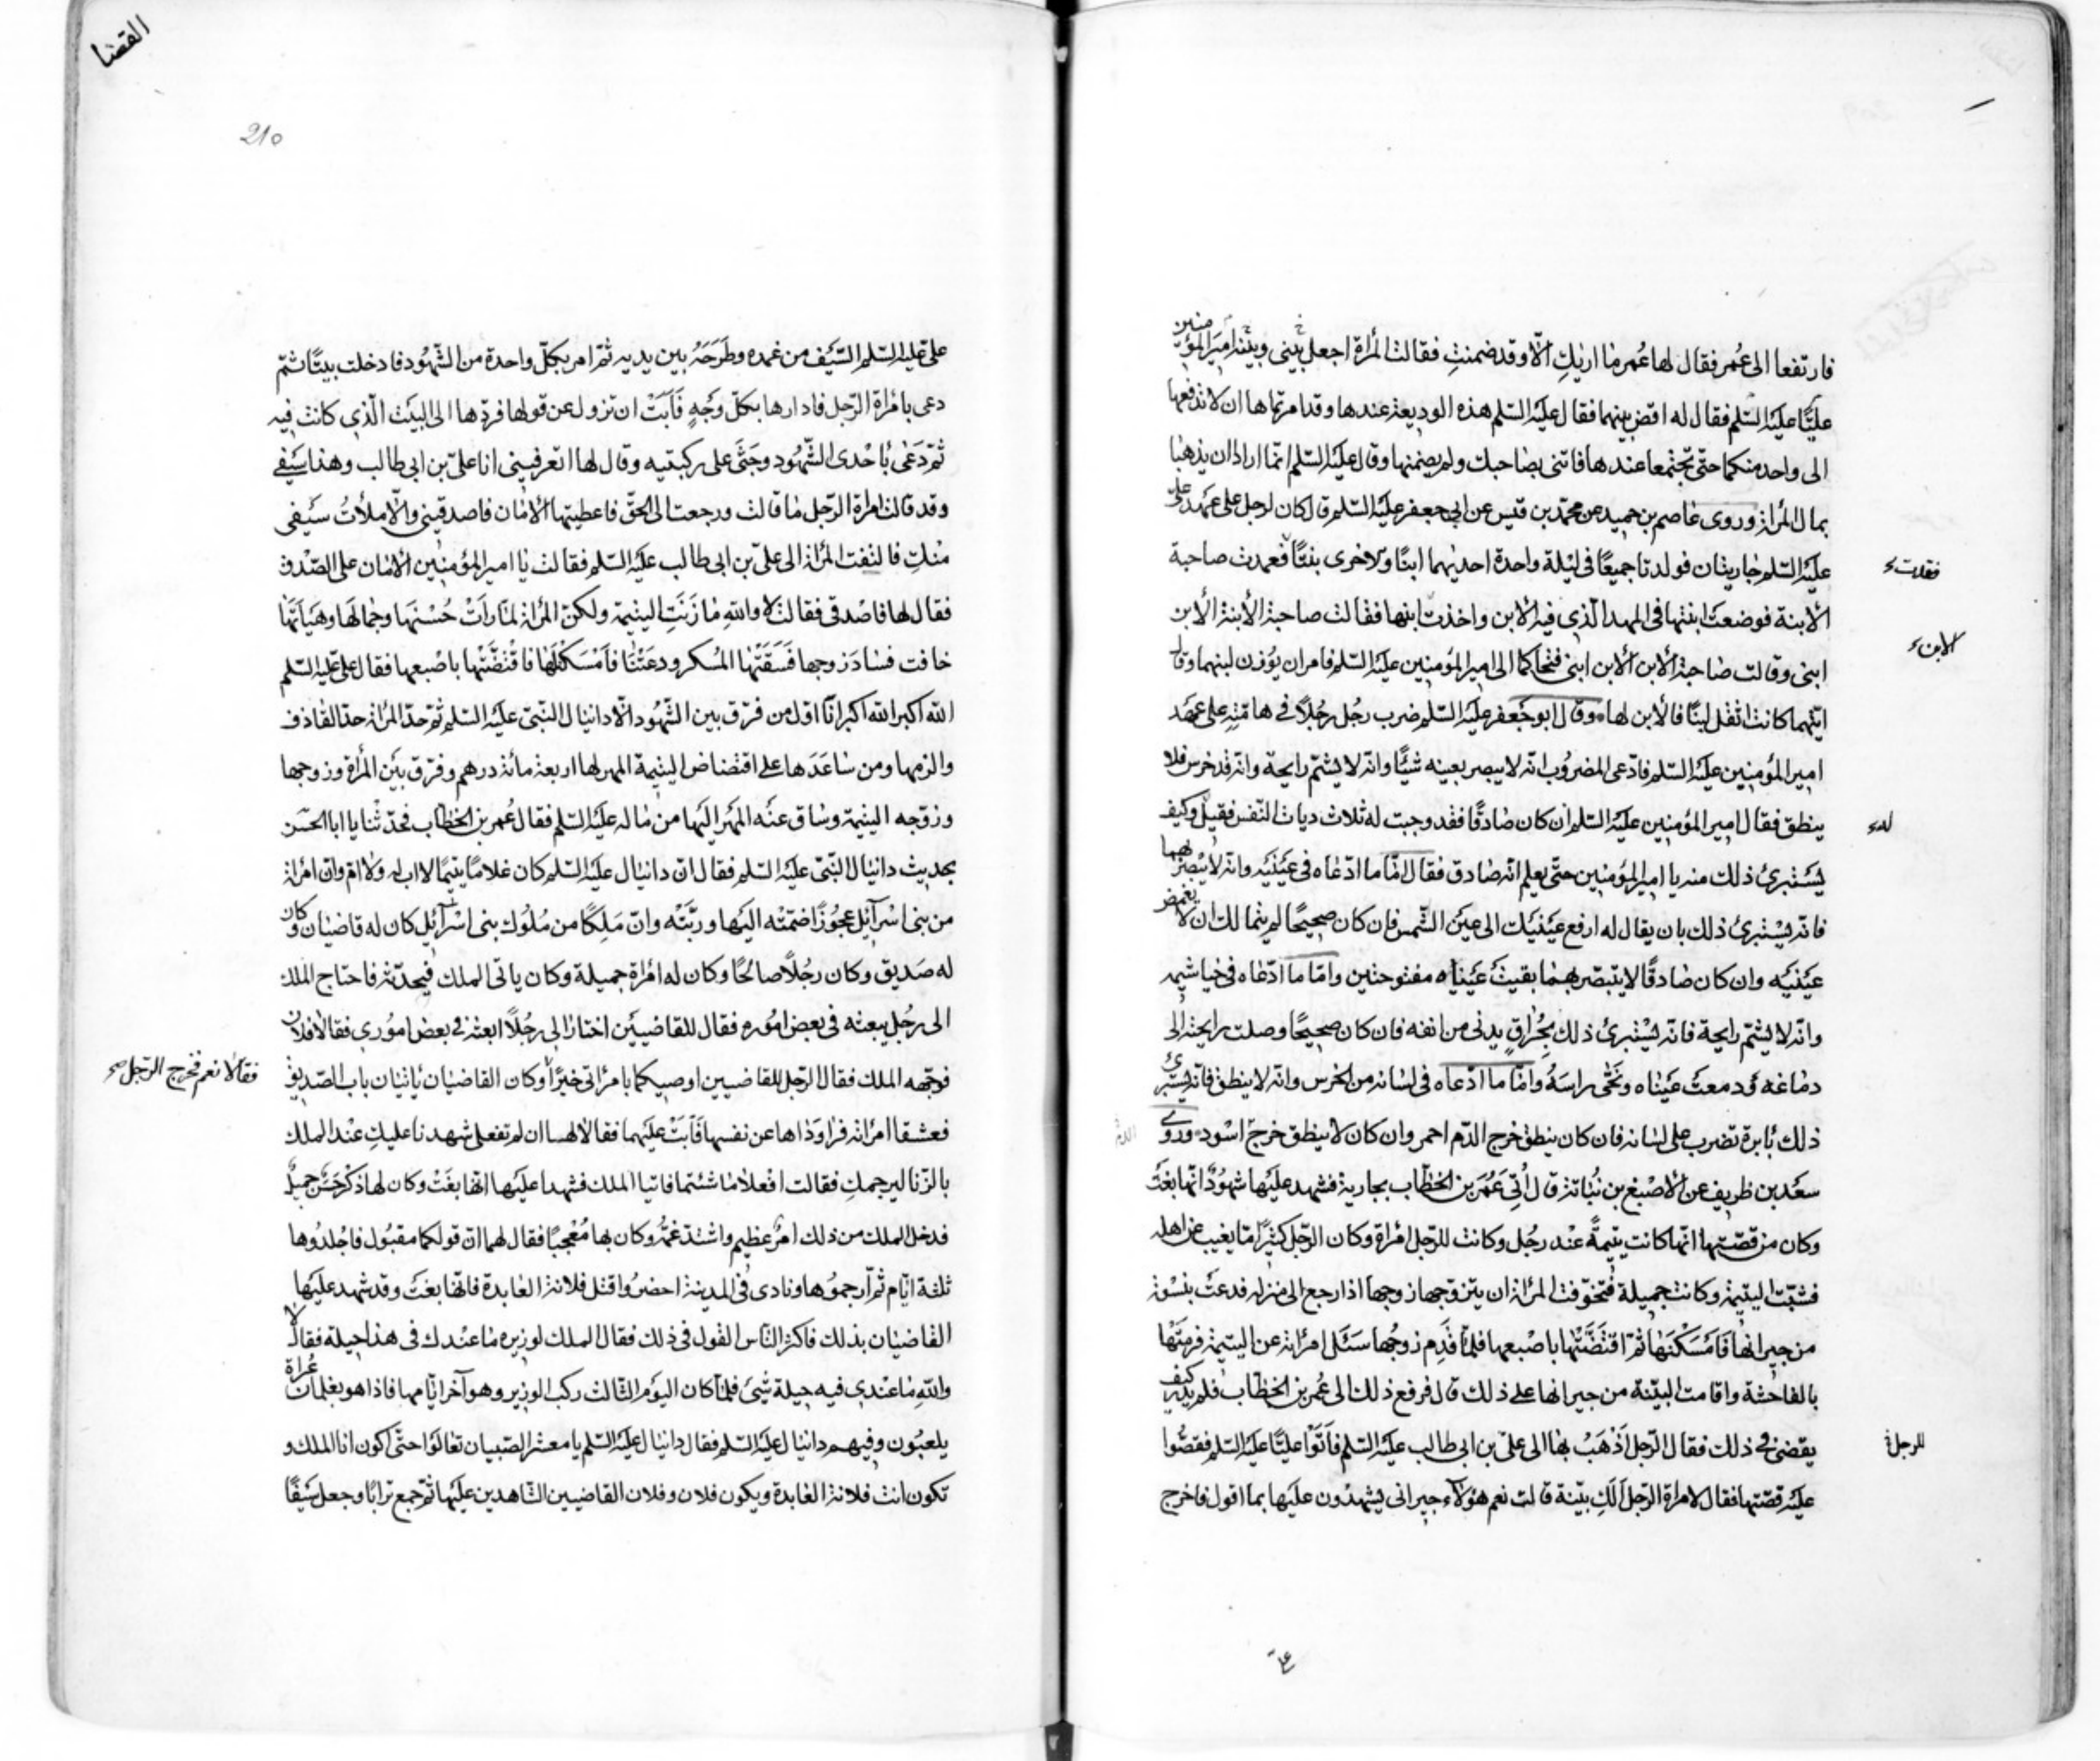 فارتفعا الى عُمر فقال لها عُمر ما اريكِ الّا وقد ضمنتِ فقالت المرأة اجعل بَيني وبَينه امير المؤمنين
عليًّا عليه السّلم فقال له اقض بينهما فقال عليه السّلم هذه الوديعة عندها وقد امرتماها ان لا تدفعها
الى واحد منكما حتّى تجتمعا عندها فاتنى بصاحبك ولم يضمنها وقال عليه السّلم انّما ارادا ان يذهبا
بمال المرأة وروى عاصم بن حميد عن محمّد بن قيس عن ابى جعفر عليه السّلم قال كان لرجل على عهد علىّ
عليه السّلم جاريتان فولدتا جميعًا فى ليلة واحدة احديهما ابنًا والاخرى بنتًا فعمدت صاحبة
فقلت
الابنة فوضعت ابنتها فى المهد الّذى فيه الابن واخذت ابنها فقالت صاحبة الابنة الابن
الابن
ابنى وقالت صاحبة الابن الابن ابنى فتحاكما الى امير المؤمنين عليه السّلم فامر ان يوزن لبنهما وقال
ايّتهما كانت اثقل لبنًا فالابن لها وقال ابو جعفر عليه السّلم ضرب رجُل رجُلًا فى هامّته على عهد
امير المؤمنين عليه السّلم فادّعى المضروب انّه لا يبصر بعينه شيئًا وانّه لا يشمّ رايحة وانّه قد خرس فلا
ينطق فقال امير المؤمنين عليه السّلم ان كان صادقًا فقد وجبت له ثلاث ديات النّفس فقيل وكيف
له
يستبرئ ذلك منه يا امير المؤمنين حتّى يعلم انّه صادق فقال امّا ما ادّعاه فى عينيه وانّه لا يبصر بهما
فانّه يستبرئ ذلك بان يقال له ارفع عينيك الى عين الشّمس فان كان صحيحًا لم يتمالك ان لا يغمض
عينيه وان كان صادقًا لا يتبصّر بهما بقيت عيناه مفتوحتين وامّا ما ادّعاه فى خياشيمه
وانّه لا يشمّ رايحة فانّه يستبرئ ذلك بحُراق يدنى من انفه فان كان صحيحًا وصلت رايحته الى
دماغه ودمعت عيناه ونحّى براسه وامّا ما ادّعاه فى لسانه من الخرس وانّه لا ينطق فانّه يستبرئ
ذلك بابرة تضرب على لسانه فان كان ينطق خرج الدّم احمر وان كان لا ينطق خرج اسود وروى
سعد بن ظريف عن الاصبغ بن نُباتة قال اُتى عُمر بن الخطّاب بجارية فشهد عليها شهُودٌ انّها بغت
وكان من قصّتها انّها كانت يتيمةً عند رجُل وكانت للرّجل امرأة وكان الرّجل كثيرًا ما يغيب عن اهله
فشبّت اليتيمة وكانت جميلة فتخوّفت المرأة ان يتزوّجها زوجها اذا رجع الى منزله فدعت بنسوة
من جيرانها فامسكنها ثمّ اقتضّتها باصبعها فلمّا قدم زوجُها سئل امرأته عن اليتيمة فرمتها
بالفاحشة واقامت البيّنة من جيرانها على ذلك قال فرفع ذلك الى عُمر بن الخطّاب فلم يدر كيف
يقضى فى ذلك فقال الرّجل اذهب بها الى علىّ بن ابى طالب عليه السّلم فاتوا عليًّا عليه السّلم فقصّوا
للرجل
عليه قصّتها فقال لامرأة الرّجل الكِ بيّنة قالت نعم هؤلاء جيرانى يشهدون عليها بما اقول فاخرج
القضا
210
علىّ عليه السّلم السّيف من غمده وطَرَحَهُ بين يديه ثمّ امر بكلّ واحدة من الشّهود فادخلت بيتًا ثمّ
دعى بامرأة الرّجل فادارها بكلّ وجهٍ فابت ان تزول عن قولها فردّها الى البيت الّذى كانت فيه
ثمّ دعى باحدى الشّهود وجثى على ركبتيه وقال لها اتعرفينى انا علىّ بن ابى طالب وهذا سيفى
وقد قالت امرأة الرّجل ما قالت ورجعت الى الحقّ فاعطيتها الامان فاصدقينى والّا ملأتُ سيفى
منكِ فالتفت المرأة الى علىّ بن ابى طالب عليه السّلم فقالت يا امير المؤمنين الامان على الصّدق
فقال لها فاصدقى فقالت لا والله ما زنتِ اليتيمة ولكن المرأة لمّا رات حُسنها وجمالها وهيأتها
خافت فساد زوجها فسقتها المُسكر ودعتنا فامسكناها فاقتضّتها باصبعها فقال علىّ عليه السّلم
الله اكبر الله اكبر انا اوّل من فرّق بين الشّهود الّا دانيال النّبىّ عليه السّلم ثمّ حدّ المرأة حدّ القاذف
والزمها ومن ساعدها على اقتضاض اليتيمة المهر لها اربعة مائة درهم وفرّق بين المرأة وزوجها
وزوّجه اليتيمة وساق عنه المهر اليها من ماله عليه السّلم فقال عُمر بن الخطّاب فحدّثنا يا ابا الحسن
بحديث دانيال النّبىّ عليه السّلم فقال انّ دانيال عليه السّلم كان غلامًا يتيمًا لا اب له ولا امّ وان امرأة
من بنى اسرآئيل عجُوزًا ضمّته اليها وربّته وانّ مَلِكًا من ملُوك بنى اسرآئيل كان له قاضيان وكان
له صديق وكان رجُلًا صالحًا وكان له امرأة جميلة وكان ياتى الملك فيحدّثه فاحتاج الملك
الى رجُل يبعثه فى بعض اموره فقال للقاضيين اختارا لى رجُلًا ابعثه فى بعض امورى فقالا فلان
فوجّهه الملك فقال الرّجل للقاضيين اوصيكما بامرأتى خيرًا وكان القاضيان ياتيان باب الصّديق
فقالا نعم فخرج الرّجل
فعشقا امرأته فراوداها عن نفسها فابت عليهما فقالا لها ان لم تفعلى شهدنا عليكِ عند الملك
بالزّنا ليرجمكِ فقالت افعلا ما شئتما فاتيا الملك فشهدا عليها انّها بغت وكان لها ذكر حسن جميل
فدخل الملك من ذلك امر عظيم واشتدّ غمّه وكان بها مُعجبًا فقال لهما انّ قولكما مقبُول فاجلدُوها
ثلثة ايّام ثمّ ارجمُوها ونادى فى المدينة احضرُوا قتل فلانة العابدة فانّها بغت وقد شهد عليها
القاضيان بذلك فاكثر النّاس القول فى ذلك فقال الملك لوزيره ما عندك فى هذا حيلة فقال لا
والله ما عندى فيه حيلة شىء فلمّا كان اليوم الثّالث ركب الوزير وهو آخر ايّامها فاذا هو بغلمان عُراة
يلعبُون وفيهم دانيال عليه السّلم فقال دانيال عليه السّلم يا معشر الصّبيان تعالوا حتّى اكون انا الملك و
تكون انت فلانة العابدة ويكون فلان وفلان القاضيين الشّاهدين عليها ثمّ جمع ترابًا وجعل سيفًا